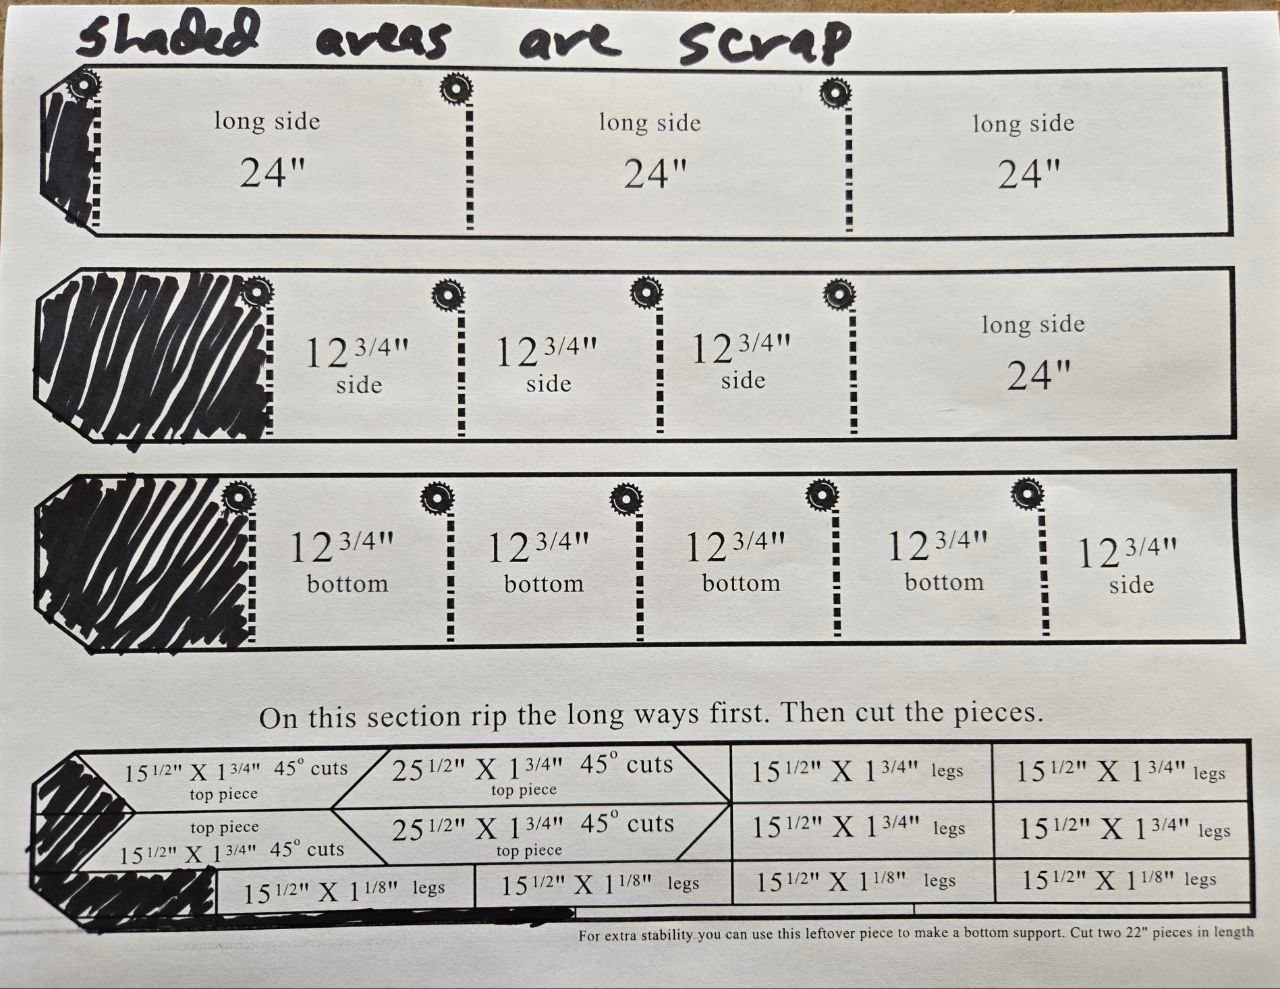 shaded areas are scrap
long side long side long side
24" 24" 24"
12 3/4" 12 3/4" 12 3/4" long side
side side side 24"
12 3/4" 12 3/4" 12 3/4" 12 3/4" 12 3/4"
bottom bottom bottom bottom side
On this section rip the long ways first. Then cut the pieces.
15 1/2" X 1 3/4" 45° cuts 25 1/2" X 1 3/4" 45° cuts 15 1/2" X 1 3/4" legs 15 1/2" X 1 3/4" legs
top piece top piece
top piece 25 1/2" X 1 3/4" 45° cuts 15 1/2" X 1 3/4" legs 15 1/2" X 1 3/4" legs
15 1/2" X 1 3/4" 45° cuts top piece
15 1/2" X 1 1/8" legs 15 1/2" X 1 1/8" legs 15 1/2" X 1 1/8" legs 15 1/2" X 1 1/8" legs
For extra stability you can use this leftover piece to make a bottom support. Cut two 22" pieces in length